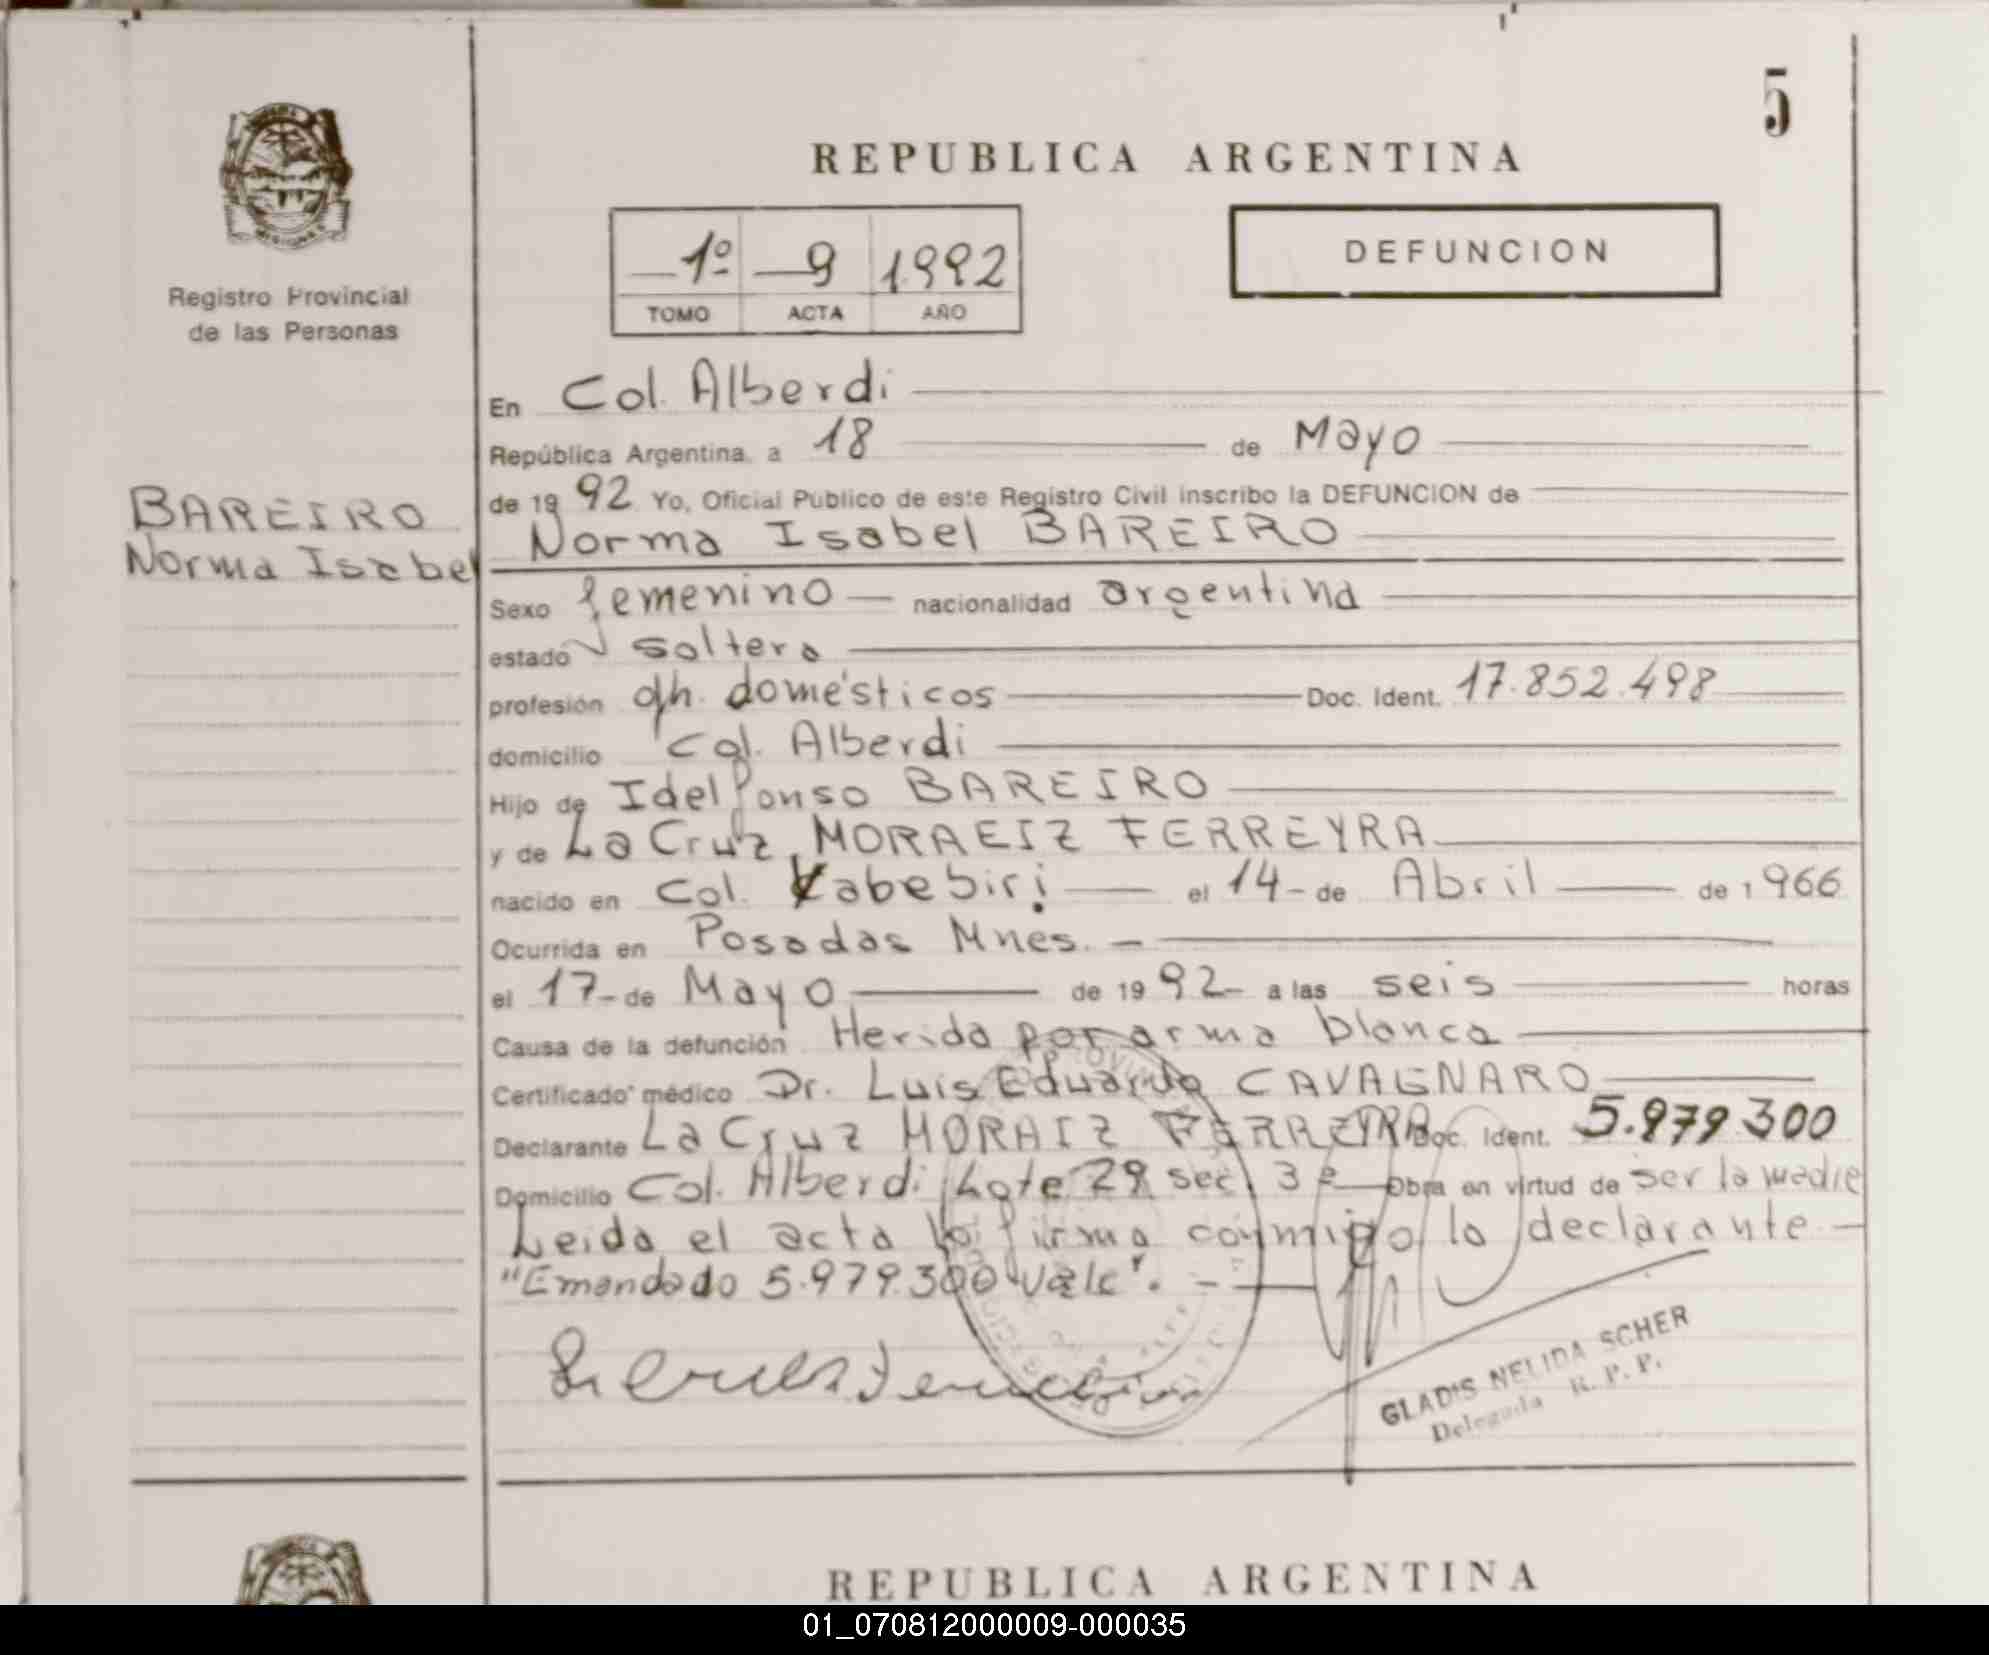 5
REPUBLICA ARGENTINA
1º 9 1992
TOMO ACTA AÑO
DEFUNCION
MISIONES
Registro Provincial
de las Personas
BAREIRO
Norma Isabel
En Col. Alberdi
República Argentina, a 18 de Mayo
de 19 92 Yo, Oficial Público de este Registro Civil inscribo la DEFUNCION de
Norma Isabel BAREIRO
Sexo femenino nacionalidad argentina
estado soltera
profesión qh. domésticos Doc. Ident. 17.852.498
domicilio Col. Alberdi
Hijo de Idelfonso BAREIRO
y de La Cruz MORAEIZ FERREYRA
nacido en Col. Yabebiri el 14 - de Abril de 1 966
Ocurrida en Posadas Mnes. -
el 17 - de Mayo de 19 92 - a las seis horas
Causa de la defunción Herida por arma blanca
Certificado médico Dr. Luis Eduardo CAVAGNARO
Declarante La Cruz MORAIZ FERREYRA Doc. Ident. 5.979.300
Domicilio Col. Alberdi Lote 29 sec. 3ª Obra en virtud de ser la madre
Leida el acta la firma conmigo la declarante -
"Emendado 5.979.300 vale". -
GLADIS NELIDA SCHER
Delegada R. P. P.
REPUBLICA ARGENTINA
01_070812000009-000035